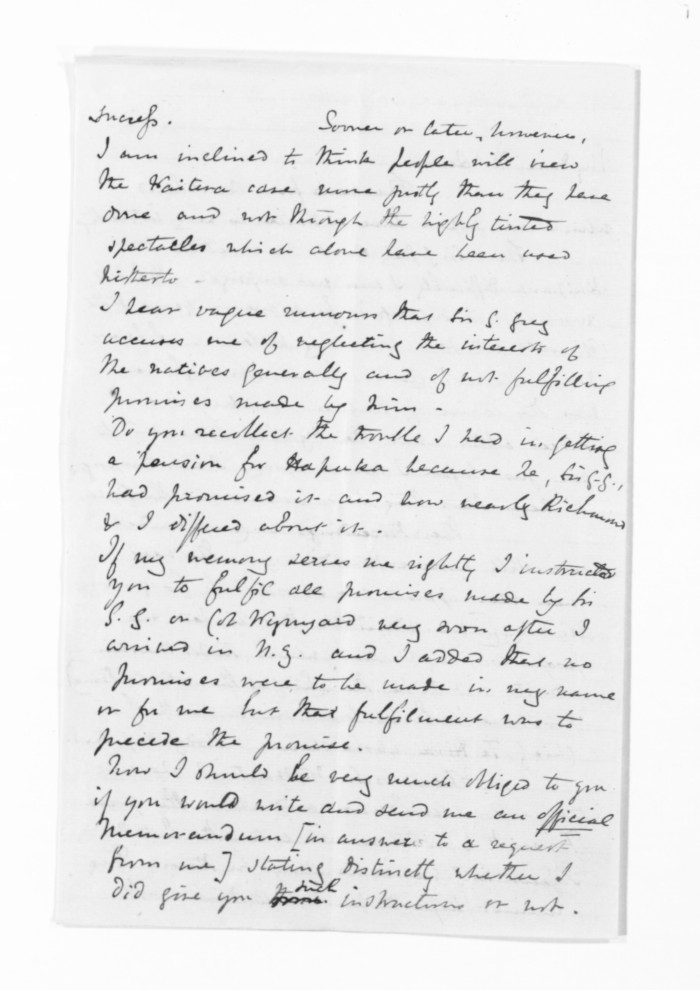 success. Sooner or later, however,
I am inclined to think people will view
the Waitara case more justly than they have
done and not through the highly tinted
spectacles which alone have been used
hitherto -
I hear vague rumours that Sir G. Grey
accuses me of neglecting the interests of
the natives generally and of not fulfilling
promises made by him -
Do you recollect the trouble I had in getting
a pension for Hapuka because he, Sir G.G.,
had promised it and how nearly Richmond
& I differed about it.
If my memory serves me rightly I instructed
you to fulfil all promises made by Sir
G. G. or Col Wynyard very soon after I
arrived in N.Z. and I added that no
promises were to be made in my name
or for me but that fulfilment was to
precede the promise.
Now I should be very much obliged to you
if you would write and send me an official
Memorandum [in answer to a request
from me] stating distinctly whether I
did give you such instructions or not.